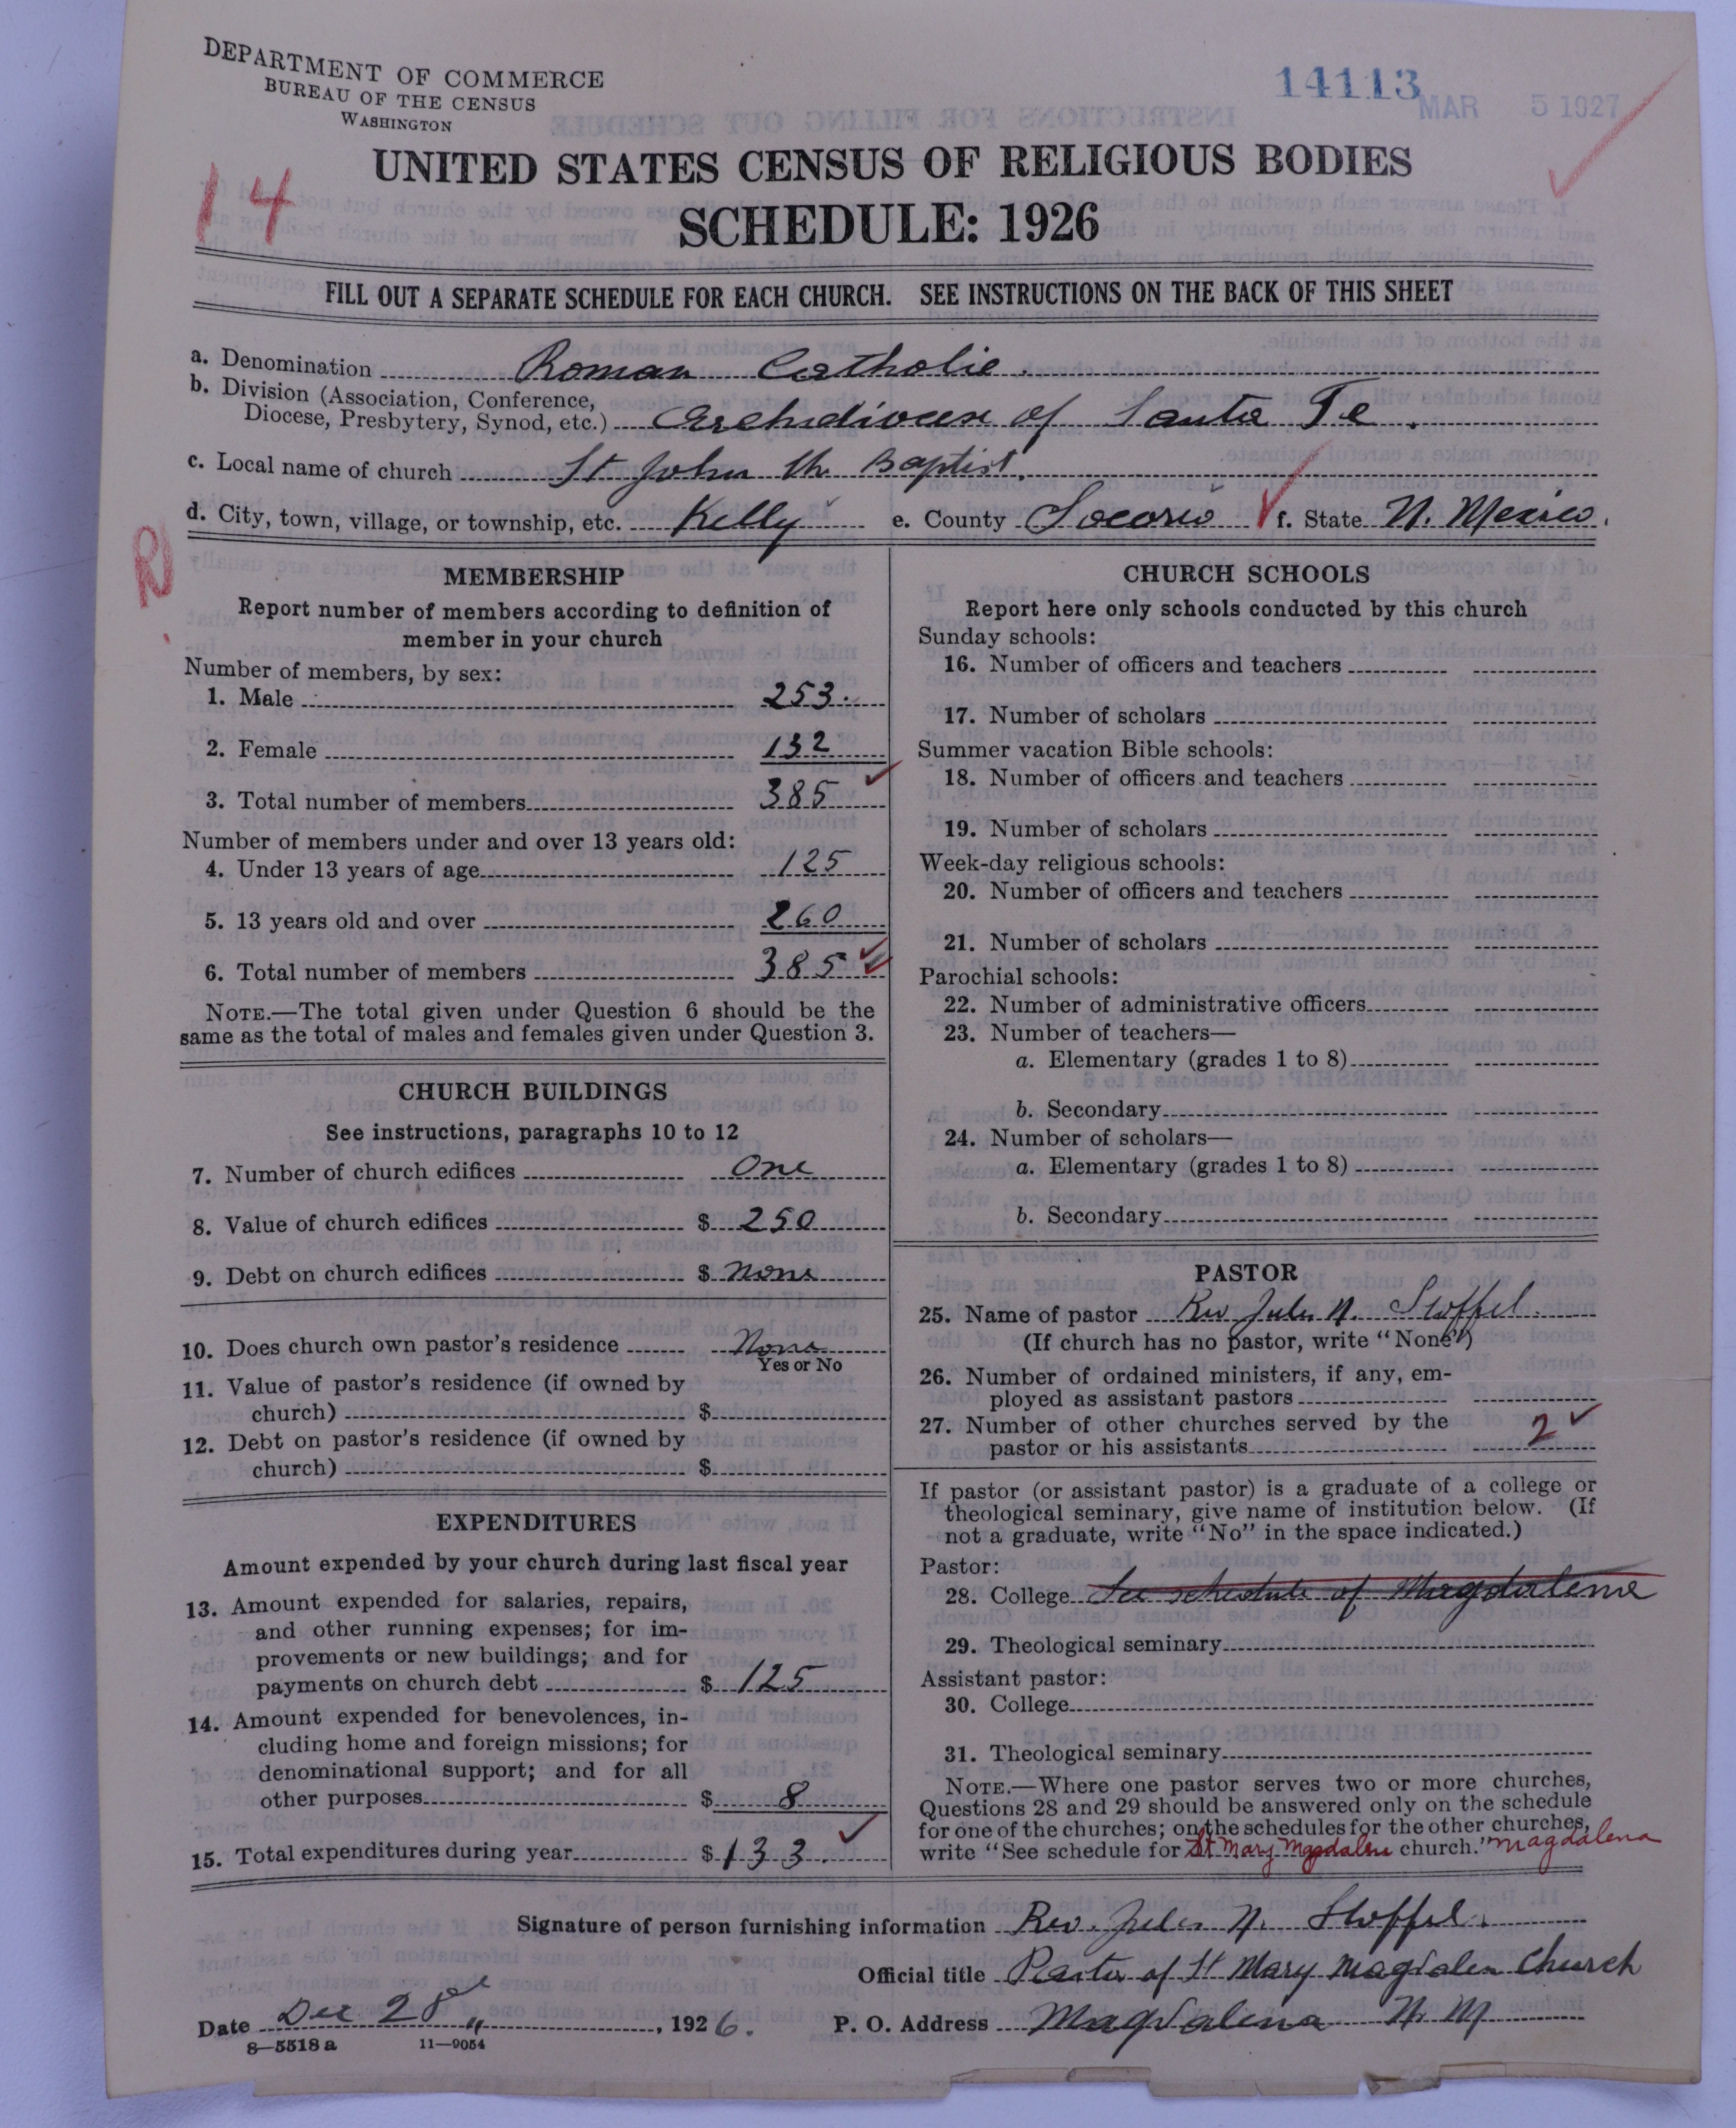 DEPARTMENT OF COMMERCE
BUREAU OF THE CENSUS
WASHINGTON
14113
MAR 5 1927
14
UNITED STATES CENSUS OF RELIGIOUS BODIES
SCHEDULE: 1926
FILL OUT A SEPARATE SCHEDULE FOR EACH CHURCH. SEE INSTRUCTIONS ON THE BACK OF THIS SHEET
a. Denomination Roman Catholic.
b. Division (Association, Conference,
Diocese, Presbytery, Synod, etc.) Archdiocese of Santa Fe.
c. Local name of church St John the Baptist.
d. City, town, village, or township, etc. Kelly e. County Socorro f. State N. Mexico.
R
MEMBERSHIP
Report number of members according to definition of
member in your church
Number of members, by sex:
1. Male 253.
2. Female 132
3. Total number of members 385
Number of members under and over 13 years old:
4. Under 13 years of age 125
5. 13 years old and over 260
6. Total number of members 385
NOTE.—The total given under Question 6 should be the
same as the total of males and females given under Question 3.
CHURCH BUILDINGS
See instructions, paragraphs 10 to 12
7. Number of church edifices One
8. Value of church edifices $ 250
9. Debt on church edifices $ none
10. Does church own pastor's residence None
Yes or No
11. Value of pastor's residence (if owned by
church) $
12. Debt on pastor's residence (if owned by
church) $
EXPENDITURES
Amount expended by your church during last fiscal year
13. Amount expended for salaries, repairs,
and other running expenses; for im-
provements or new buildings; and for
payments on church debt $ 125
14. Amount expended for benevolences, in-
cluding home and foreign missions; for
denominational support; and for all
other purposes $ 8
15. Total expenditures during year $ 133.
CHURCH SCHOOLS
Report here only schools conducted by this church
Sunday schools:
16. Number of officers and teachers
17. Number of scholars
Summer vacation Bible schools:
18. Number of officers and teachers
19. Number of scholars
Week-day religious schools:
20. Number of officers and teachers
21. Number of scholars
Parochial schools:
22. Number of administrative officers
23. Number of teachers—
a. Elementary (grades 1 to 8)
b. Secondary
24. Number of scholars—
a. Elementary (grades 1 to 8)
b. Secondary
PASTOR
25. Name of pastor Rev Jules N. Stoffel.
(If church has no pastor, write "None")
26. Number of ordained ministers, if any, em-
ployed as assistant pastors
27. Number of other churches served by the
pastor or his assistants 2
If pastor (or assistant pastor) is a graduate of a college or
theological seminary, give name of institution below. (If
not a graduate, write "No" in the space indicated.)
Pastor:
28. College See schedule of Magdalena
29. Theological seminary
Assistant pastor:
30. College
31. Theological seminary
NOTE.—Where one pastor serves two or more churches,
Questions 28 and 29 should be answered only on the schedule
for one of the churches; on the schedules for the other churches,
write "See schedule for St Mary Magdalene church." Magdalena
Signature of person furnishing information Rev. Jules N. Stoffel.
Official title Pastor of St Mary Magdalen Church
Date Dec 28 , 1926. P. O. Address Magdalena N. M
8—5518 a 11—9054